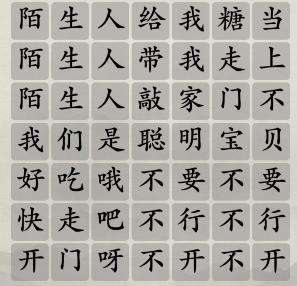 陌生人给我糖当
陌生人带我走上
陌生人敲家门不
我们是聪明宝贝
好吃哦不要不要
快走吧不行不行
开门呀不开不开